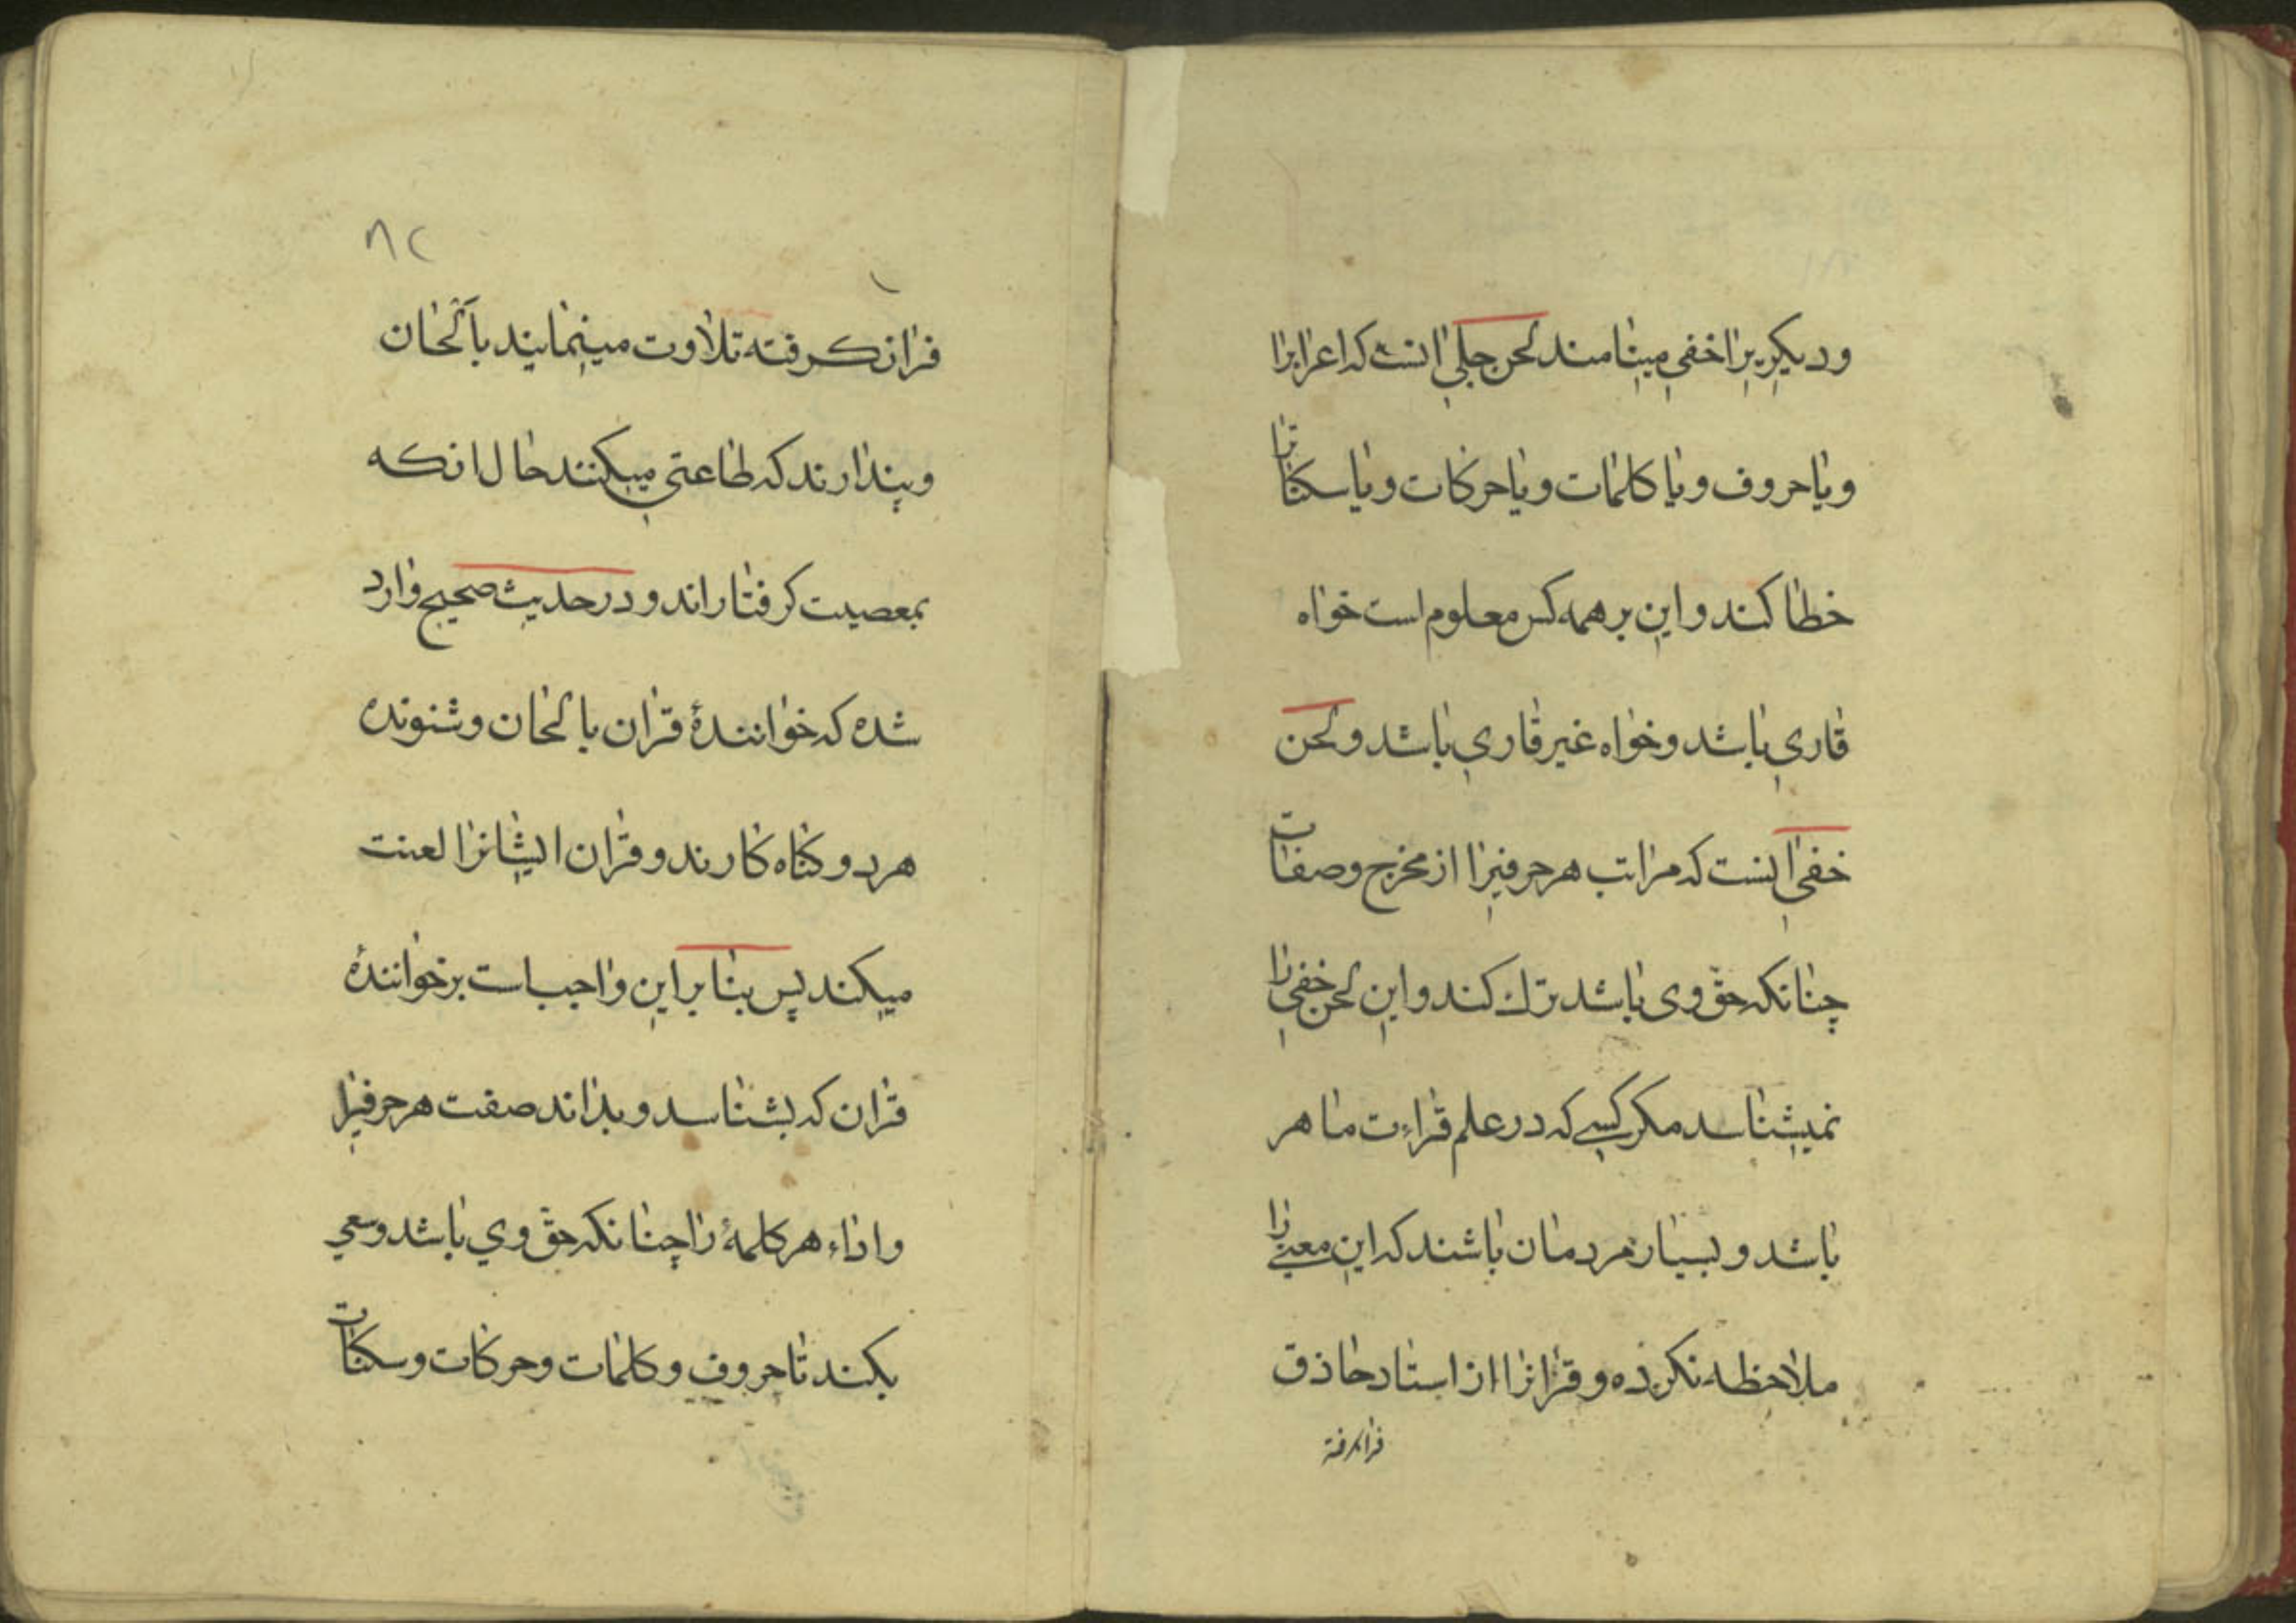 ودیکریرا خفی مینامند لحن جلی انست که اعرابرا
ویا حروف ویا کلمات ویا حرکات ویا سکناترا
خطا کند و این بر همه کس معلوم است خواه
قاری باشد وخواه غیر قاری باشد ولحن
خفی انست که مراتب هر حرفیرا از مخرج وصفات
چنانکه حق وی باشد ترك کند و این لحن خفی را
نمیشناسد مکر کسی که در علم قراءت ماهر
باشد و بسیار مردمان باشند که این معنی را
ملاحظه نکرده و قرانرا از استاد حاذق
فرا کرفته
٨٢
فرا نکرفته تلاوت مینمایند بآلحان
وپندارند که طاعتی میکنند حال انکه
بمعصیت کرفتار اند و در حدیث صحیح وارد
شده که خوانندۀ قران بالحان وشنونده
هر دو کناه کارند و قران ایشانرا لعنت
میکند پس بنا براین واجب است بر خوانندۀ
قران که بشناسد و بداند صفت هر حرفیرا
واداء هر کلمۀ را چنانکه حق وی باشد وسعی
بکند تا حروف و کلمات وحرکات وسکنات